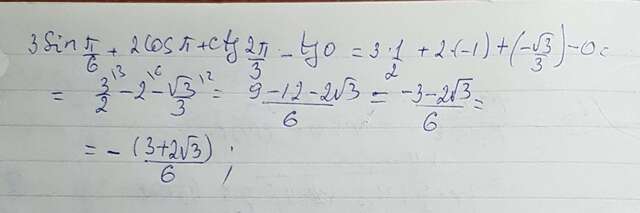 3 Sin π/6 + 2 Cos π + ctg 2π/3 - tg 0 = 3·1/2 + 2·(-1) + (-√3/3) - 0 =
= 3/2 \3 - 2 \6 - √3/3 \2 = 9-12-2√3/6 = -3-2√3/6 =
= - (3+2√3)/6 ;